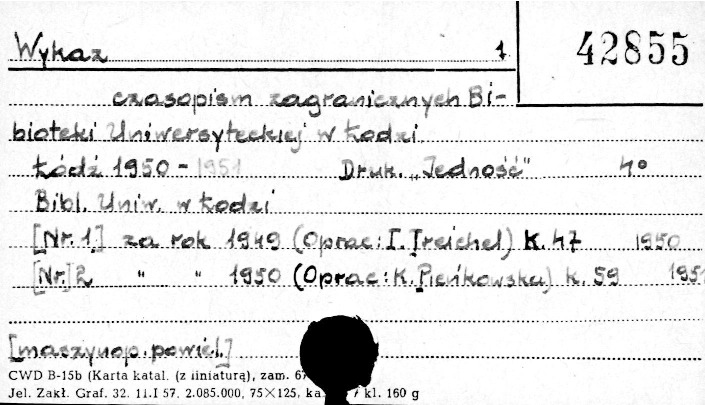 Wykaz 1 42855
czasopism zagranicznych Bi-
bioteki Uniwersyteckiej w Łodzi
Łódź 1950 - 1951 Druk. "Jedność" 4°
Bibl. Uniw. w Łodzi
[Nr. 1] za rok 1949 (Oprac: I. Treichel) K. 47 1950
[Nr.] 2 " " 1950 (Oprac: K. Pieńkowska) k. 59 1951
[maszynop. powiel.]
CWD B-15b (Karta katal. (z liniaturą), zam. 67
Jel. Zakł. Graf. 32. 11.I 57. 2.085.000, 75×125, ka 7 kl. 160 g